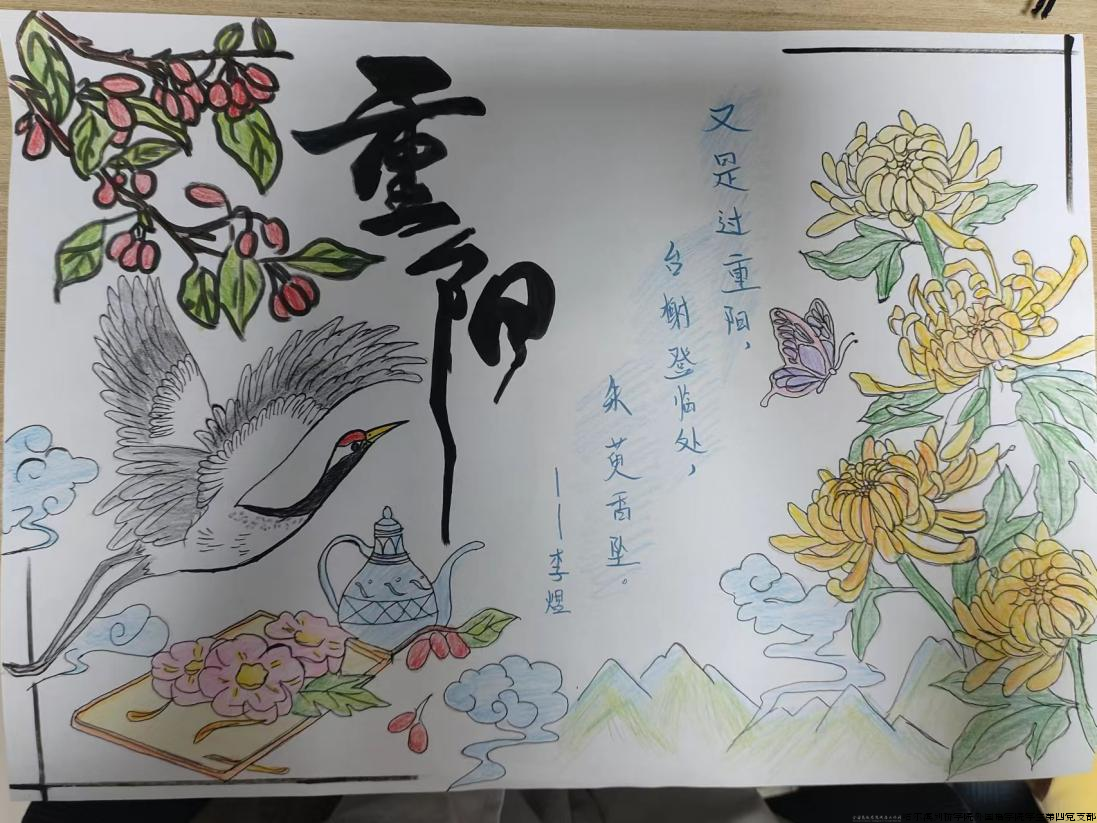 重阳
又是过重阳，
台榭登临处，
朱萸香坠。
——李煜
第四党支部